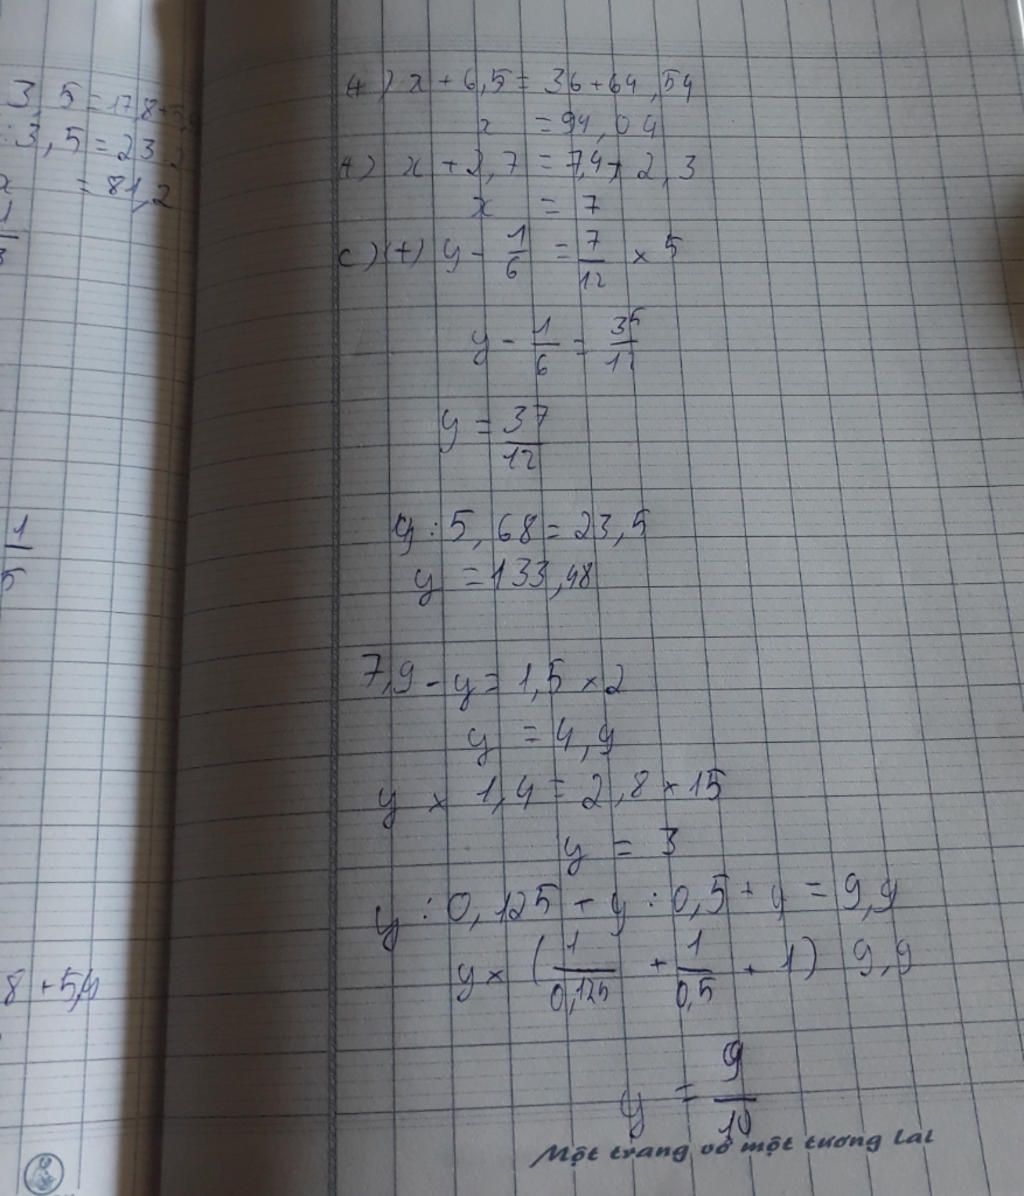 3, 5 = 17,8 + 5,
: 3, 5 = 23,
x = 81,2
1/3
1/5
8 + 5,4
+) x + 6,5 = 36 + 64,54
x = 94,04
+) x + 2,7 = 7,4 + 2,3
x = 7
c) (+) y - 1/6 = 7/12 × 5
y - 1/6 = 35/12
y = 37/12
y : 5,68 = 23,5
y = 133,48
7,9 - y = 1,5 × 2
y = 4,9
y × 1,4 = 2,8 × 15
y = 3
y : 0,125 + y : 0,5 + y = 9,9
y × (1/0,125 + 1/0,5 + 1) 9,9
y = 9/10
Một trang vở một tương lai